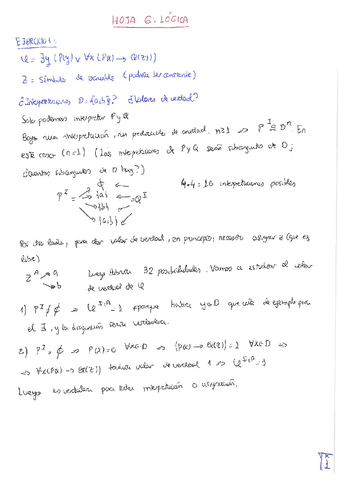 HOJA 6: LÓGICA
EJERCICIO 1:
φ = ∃y (P(y) ∨ ∀x (P(x) → Q(z)))
z = Símbolo de variable (podría ser constante)
¿Interpretaciones D={a,b}? ¿Valores de verdad?
Solo podemos interpretar P y Q
Bajo una interpretación, un predicado de aridad n≥1 → P^I ⊆ D^n. En
este caso (n=1) (Las interpretaciones de P y Q serán subconjuntos de D;
¿Cuántos subconjuntos de D hay?)
∅
P^I = {a} = Q^I 4·4 = 16 interpretaciones posibles
{b}
{a,b}
Por otro lado, para dar valor de verdad, en principio, necesito asignar z (que es
libre)
z^A → a Luego habría 32 posibilidades. Vamos a estudiar el valor
→ b de verdad de φ
1) P^I ≠ ∅ → φ^I = 1 porque habrá y∈D que sirve de ejemplo para
el ∃, y la disyunción sería verdadera.
2) P^I = ∅ ⇒ P(x)=0 ∀x∈D ⇒ (P(x) → Q(z))=1 ∀x∈D ⇒
⇒ ∀x(P(x) → Q(z)) tendrá valor de verdad 1 ⇒ φ^{I,A} = 1
Luego es verdadera para toda interpretación o asignación.